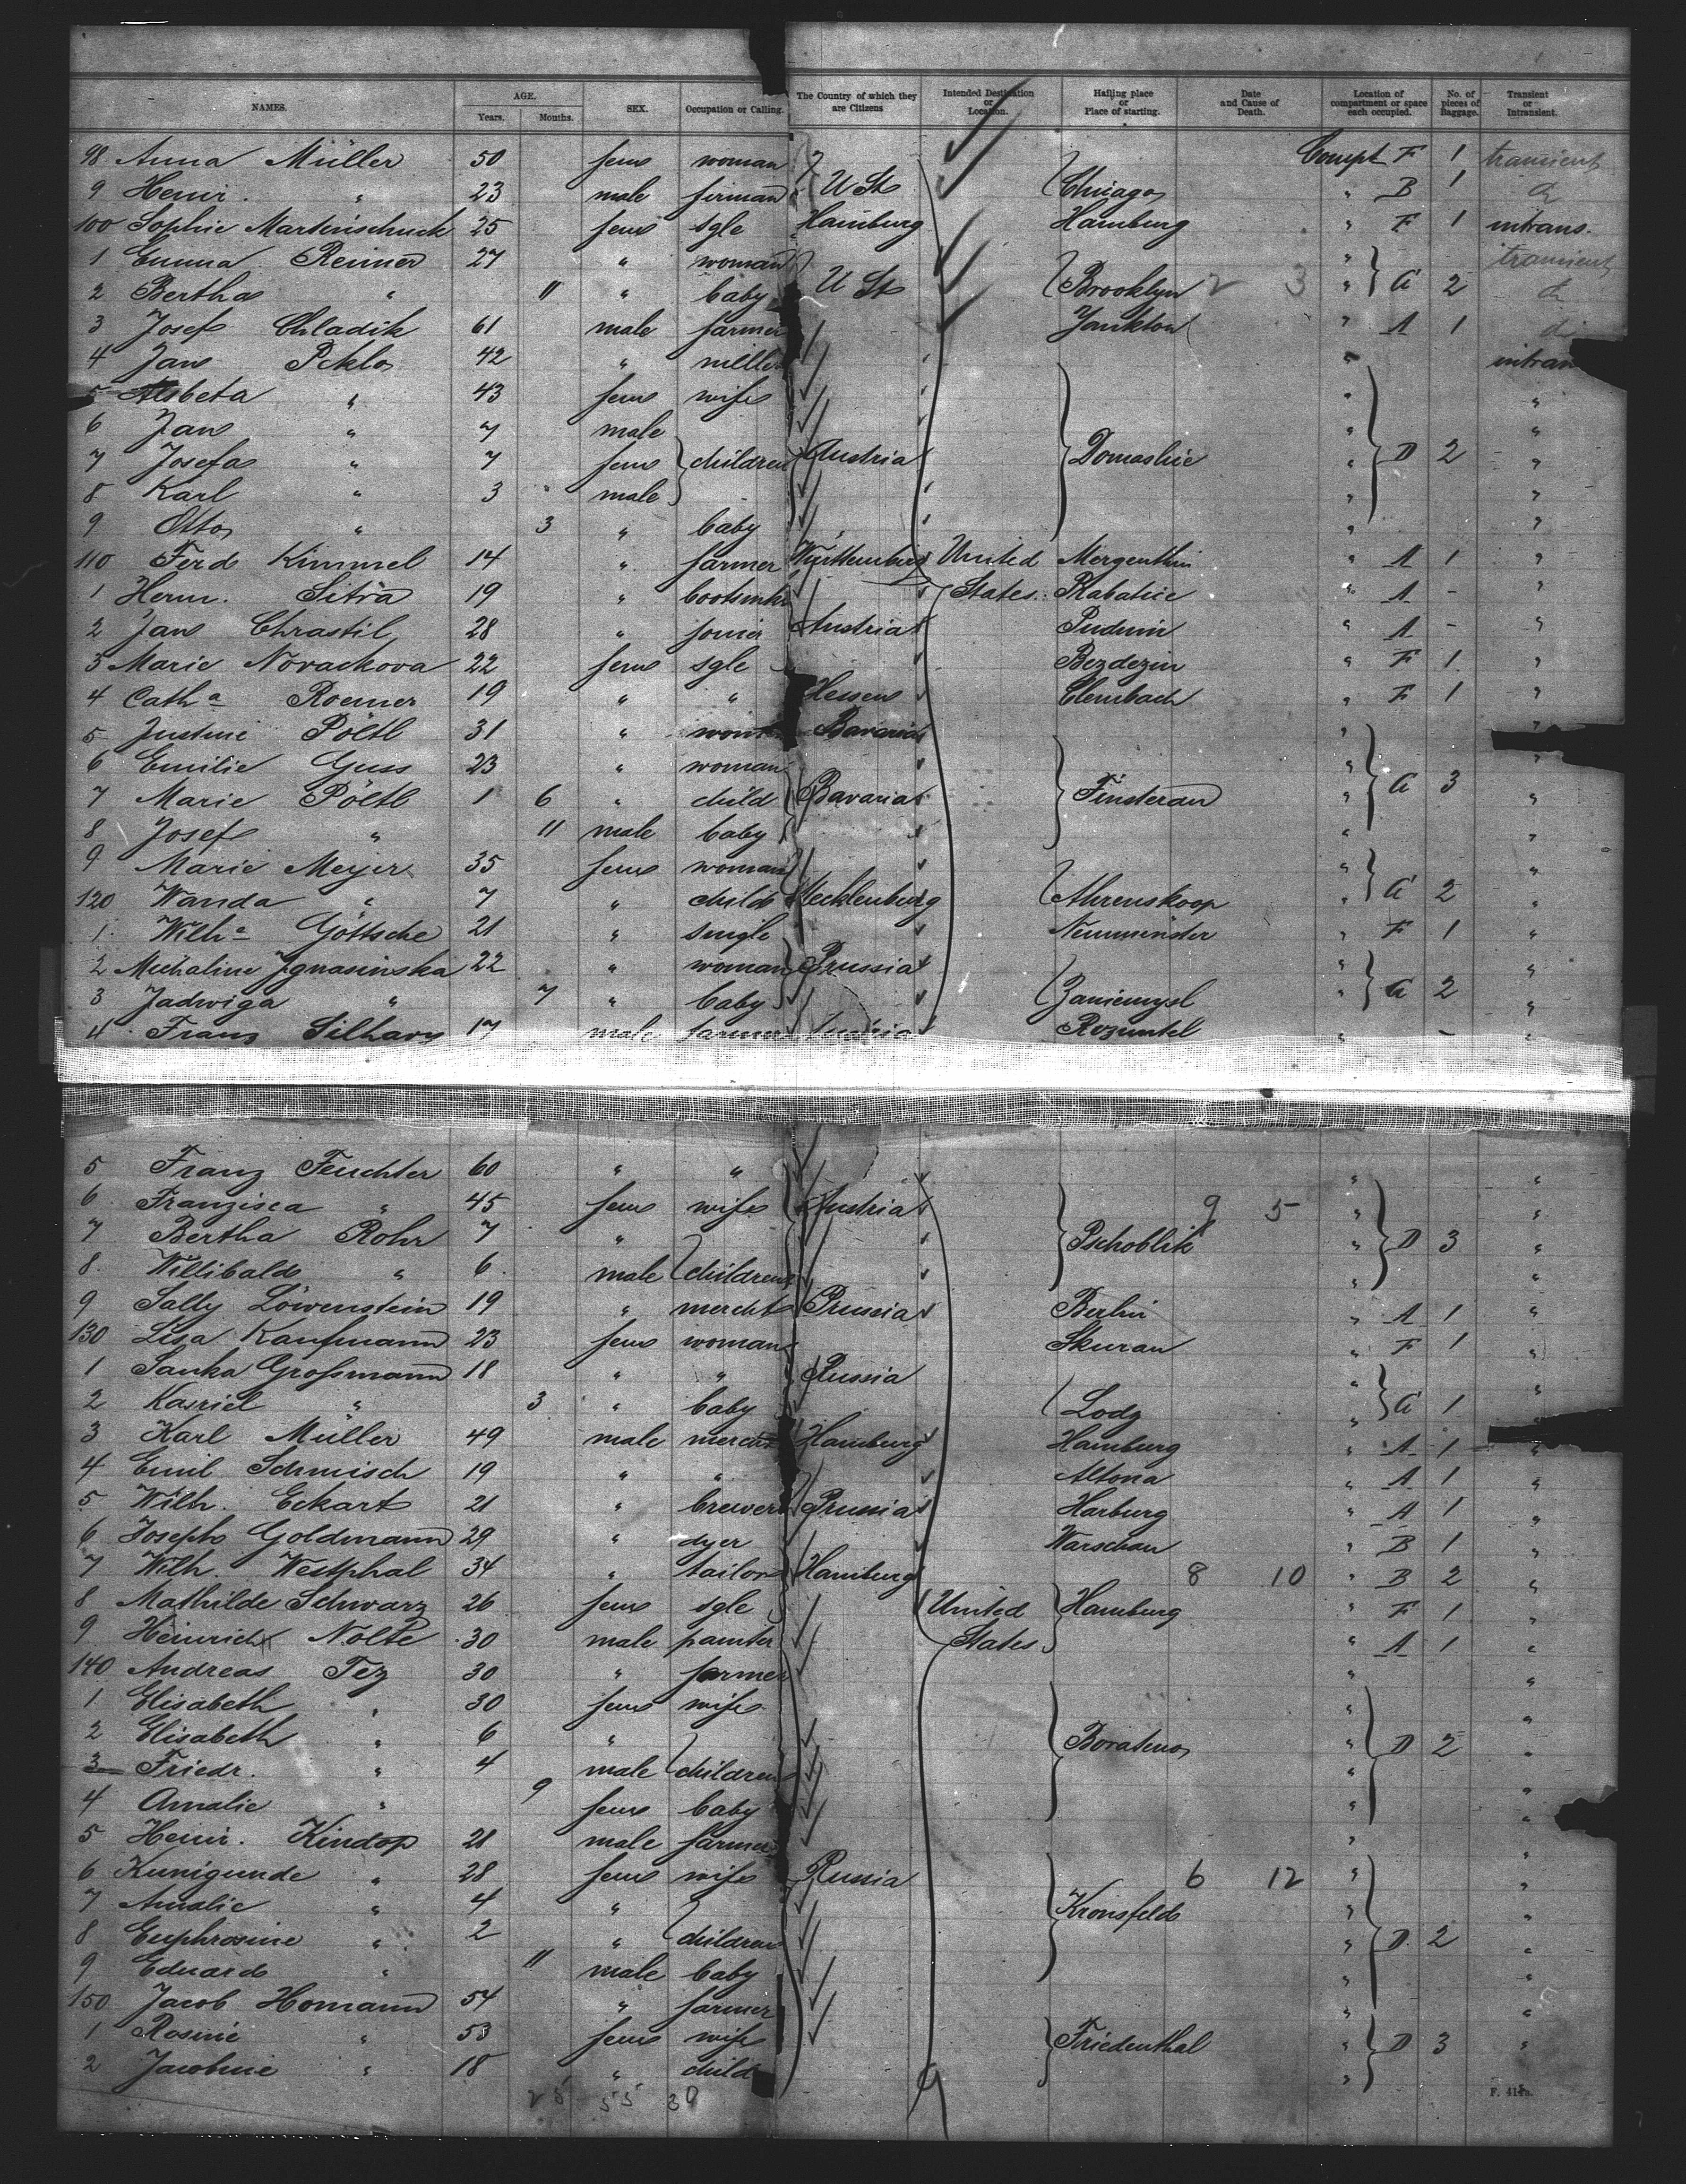 NAMES. AGE. Years. Months. SEX. Occupation or Calling. The Country of which they are Citizens Intended Destination or Location. Hailing place or Place of starting. Date and Cause of Death. Location of compartment or space each occupied. No. of pieces of Baggage. Transient or Intransient.
98 Anna Müller 50 fem woman Compt F 1 transient
9 Heinr. " 23 male fireman U St Chicago " B 1 do
100 Sophie Martinschuck 25 fem sgle Hamburg Hamburg " F 1 intrans.
1 Emma Reimer 27 " woman " transient
2 Bertha " 11 " baby U St Brooklyn 2 3 " A 2 do
3 Josef Chladik 61 male farmer Yankton " A 1 do
4 Jan Peklo 42 " miller " intran
5 Alsbeta " 43 fem wife " "
6 Jan " 7 male " "
7 Josefa " 7 fem children Austria Domaslic " D 2 "
8 Karl " 3 male " "
9 Otto " 3 " baby " "
110 Ferd Kimmel 14 " farmer Württemberg United Mergenthin " A 1 "
1 Herm. Sitra 19 " bootsmkr States. Rabatice " A - "
2 Jan Chrastil 28 " joiner Austria Pudmin " A - "
3 Marie Novackova 22 fem sgle Bezdezin " F 1 "
4 Catha Roemer 19 " " Hessen Clembach " F 1 "
5 Justine Pöltl 31 " wom Bavaria " "
6 Emilie Guss 23 " woman " "
7 Marie Pöltl 1 6 " child Bavaria Finsterau " A 3 "
8 Josef " 11 male baby " "
9 Marie Meyer 35 fem woman " "
120 Wanda " 7 " child Mecklenburg Ahrenskoop " A 2 "
1 Wilha Göttsche 21 " single Neumünster " F 1 "
2 Michaline Ignasinska 22 " woman Prussia " "
3 Jadwiga " 7 " baby Zaniemysl " A 2 "
4 Franz Silhavy 17 male farmer Austria Rozumtel " - "
5 Franz Feuchter 60 " " " "
6 Franzisca " 45 fem wife Austria 9 5 " "
7 Bertha Rohr 7 " Pschoblik " D 3 "
8 Willibald " 6 male children " "
9 Sally Löwenstein 19 " mercht Prussia Berlin " A 1 "
130 Lisa Kaufmann 23 fem woman Skuran " F 1 "
1 Sanka Grossmann 18 " " Russia " "
2 Kasriel " 3 " baby Lodz " A 1 "
3 Karl Müller 49 male mercht Hamburg Hamburg " A 1 "
4 Emil Schmisch 19 " " Altona " A 1 "
5 Wilh. Eckart 21 " brewer Prussia Harburg " A 1 "
6 Joseph Goldmann 29 " dyer Warschau " B 1 "
7 Wilh. Westphal 34 " tailor Hamburg 8 10 " B 2 "
8 Mathilde Schwarz 26 fem sgle United Hamburg " F 1 "
9 Heinrich Nolte 30 male painter States " A 1 "
140 Andreas Tez 30 " farmer " "
1 Elisabeth " 30 fem wife " "
2 Elisabeth " 6 " Boratino " D 2 "
3 Friedr. " 4 male children " "
4 Amalie " 9 fem baby " "
5 Heinr. Kindop 21 male farmer " "
6 Kunigunde " 28 fem wife Russia 6 12 " "
7 Amalie " 4 " Kronsfeld " "
8 Euphrosine " 2 " children " D 2 "
9 Eduard " 11 male baby " "
150 Jacob Homann 54 " farmer " "
1 Rosine " 53 fem wife Friedenthal " D 3 "
2 Jacobine " 18 " child "
25 55 30